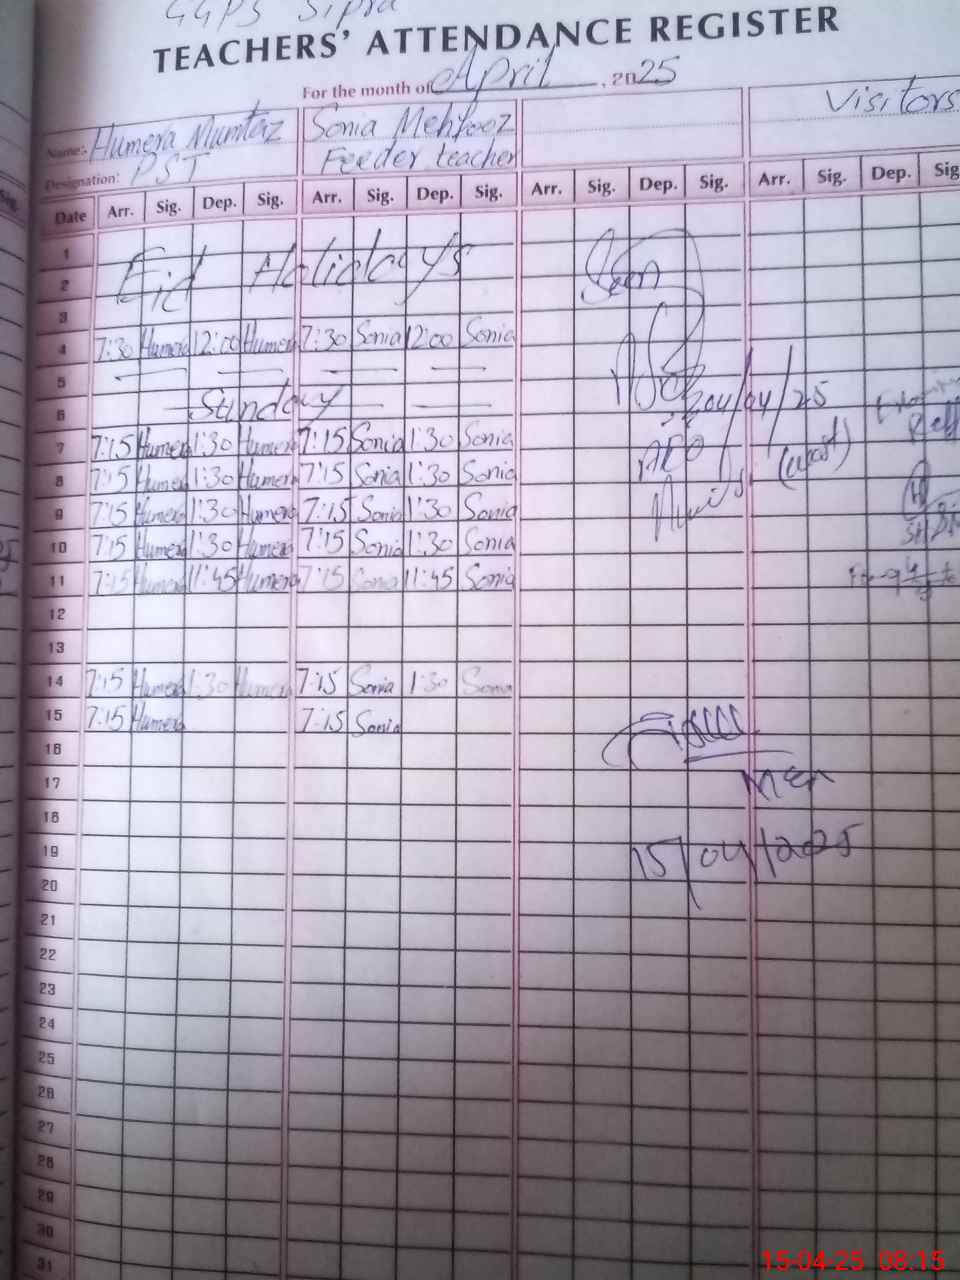 GGPS Sipra
TEACHERS' ATTENDANCE REGISTER
For the month of April, 2025
Name:- Humera Mumtaz Sonia Mehfooz Visitors
Designation: PST Feeder teacher
Date Arr. Sig. Dep. Sig. Arr. Sig. Dep. Sig. Arr. Sig. Dep. Sig. Arr. Sig. Dep. Sig
1
2 Eid Holidays Seen
3
4 7:30 Humera 12:00 Humera 7:30 Sonia 12:00 Sonia
5 — — — —
6 — Sunday — — 04/04/25
7 7:15 Humera 1:30 Humera 7:15 Sonia 1:30 Sonia AEO
8 7:15 Humera 1:30 Humera 7:15 Sonia 1:30 Sonia
9 7:15 Humera 1:30 Humera 7:15 Sonia 1:30 Sonia
10 7:15 Humera 1:30 Humera 7:15 Sonia 1:30 Sonia
11 7:15 Humera 11:45 Humera 7:15 Sonia 11:45 Sonia
12
13
14 7:15 Humera 1:30 Humera 7:15 Sonia 1:30 Sonia
15 7:15 Humera 7:15 Sonia
16
17 MEA
18
19 15/04/2025
20
21
22
23
24
25
26
27
28
29
30
31
15-04-25 08:15